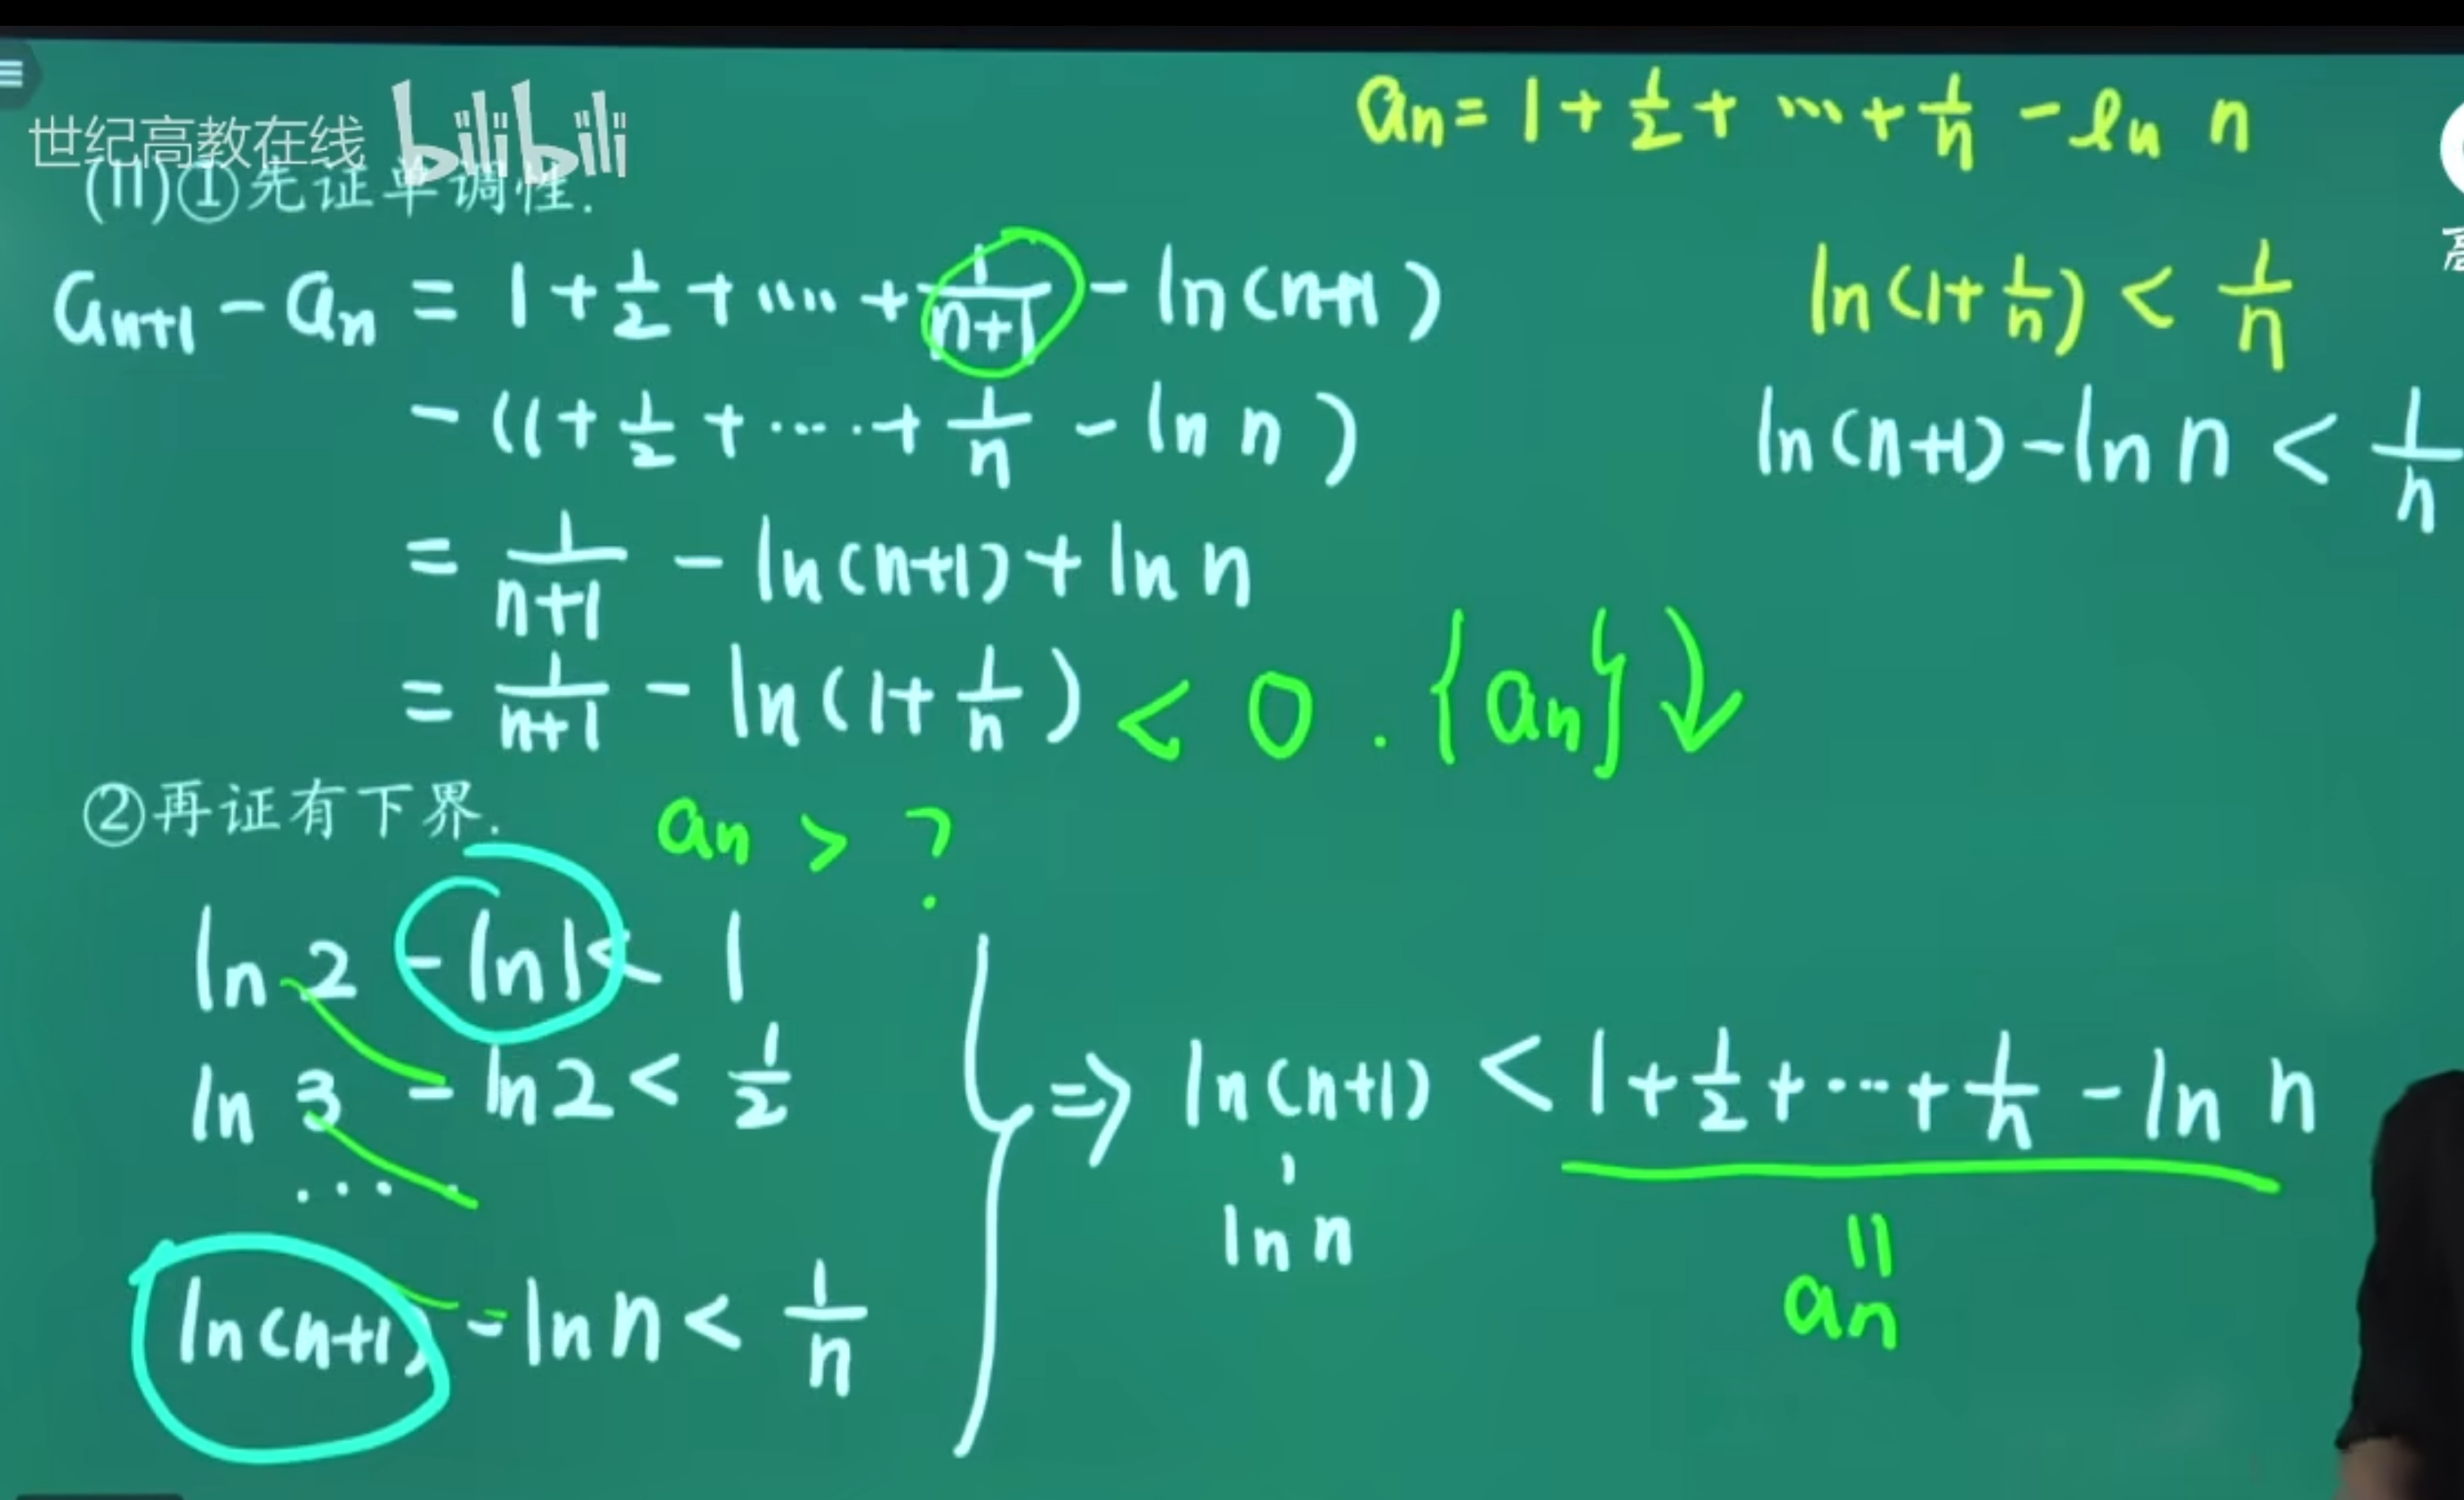 世纪高教在线 bilibili
aₙ = 1 + 1/2 + ... + 1/n - ln n
(II)①先证单调性.
aₙ₊₁ - aₙ = 1 + 1/2 + ...... + 1/(n+1) - ln(n+1)
ln(1 + 1/n) < 1/n
- (1 + 1/2 + ..... + 1/n - ln n)
ln(n+1) - ln n < 1/n
= 1/(n+1) - ln(n+1) + ln n
= 1/(n+1) - ln(1 + 1/n) < 0 . {aₙ} ↓
②再证有下界.
aₙ > ?
ln 2 - ln 1 < 1
ln 3 - ln 2 < 1/2
....
ln(n+1) - ln n < 1/n
⇒ ln(n+1) < 1 + 1/2 + ... + 1/n - ln n
- ln n
=
aₙ